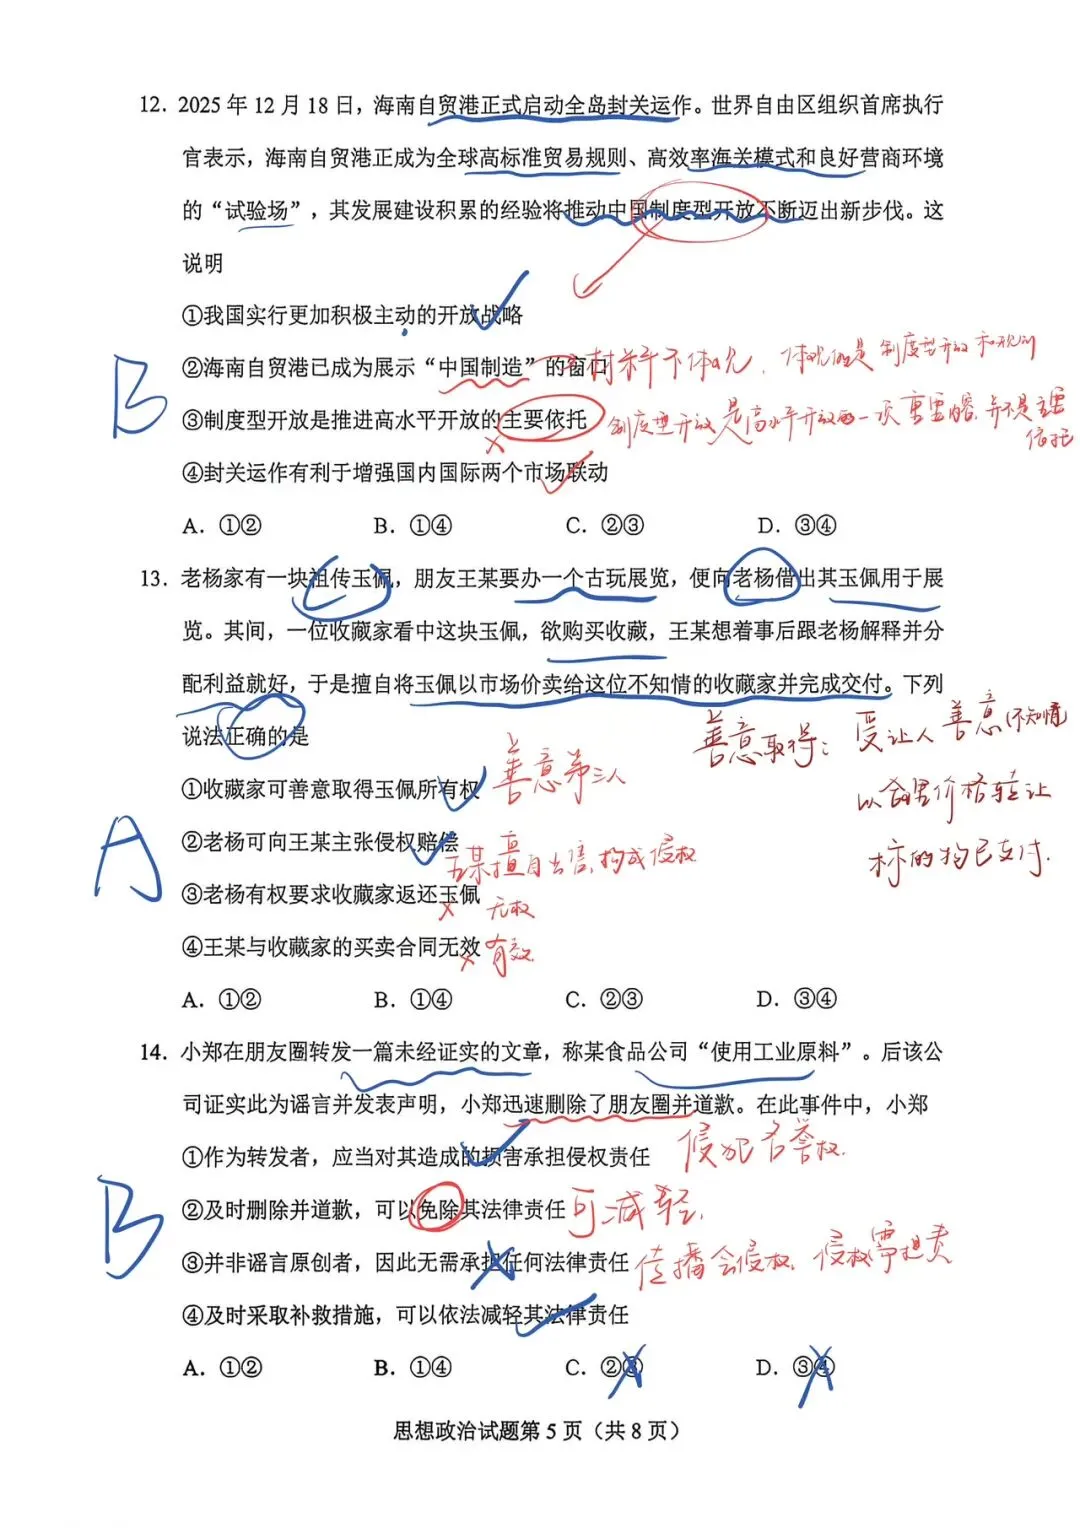 12. 2025年12月18日，海南自贸港正式启动全岛封关运作。世界自由区组织首席执行
官表示，海南自贸港正成为全球高标准贸易规则、高效率海关模式和良好营商环境
的“试验场”，其发展建设积累的经验将推动中国制度型开放不断迈出新步伐。这
说明
①我国实行更加积极主动的开放战略
②海南自贸港已成为展示“中国制造”的窗口
材料不体现，体现的是制度型开放和规则
B
③制度型开放是推进高水平开放的主要依托
制度型开放是高水平开放的一项重要内容，并不是主要
依托
④封关运作有利于增强国内国际两个市场联动
A. ①② B. ①④ C. ②③ D. ③④
13. 老杨家有一块祖传玉佩，朋友王某要办一个古玩展览，便向老杨借出其玉佩用于展
览。其间，一位收藏家看中这块玉佩，欲购买收藏，王某想着事后跟老杨解释并分
配利益就好，于是擅自将玉佩以市场价卖给这位不知情的收藏家并完成交付。下列
说法正确的是
善意取得：受让人善意(不知情
以合理价格转让
标的物已支付.
①收藏家可善意取得玉佩所有权
善意第三人
②老杨可向王某主张侵权赔偿
王某擅自出售，构成侵权
A
③老杨有权要求收藏家返还玉佩
无权
④王某与收藏家的买卖合同无效
有效
A. ①② B. ①④ C. ②③ D. ③④
14. 小郑在朋友圈转发一篇未经证实的文章，称某食品公司“使用工业原料”。后该公
司证实此为谣言并发表声明，小郑迅速删除了朋友圈并道歉。在此事件中，小郑
①作为转发者，应当对其造成的损害承担侵权责任
侵犯名誉权.
②及时删除并道歉，可以免除其法律责任
可减轻.
B
③并非谣言原创者，因此无需承担任何法律责任
传播会侵权，侵权需担责
④及时采取补救措施，可以依法减轻其法律责任
A. ①② B. ①④ C. ②③ D. ③④
思想政治试题第5页（共8页）